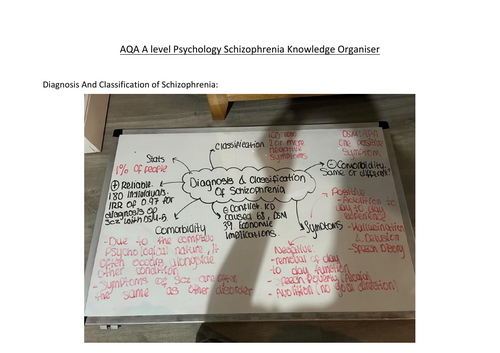 AQA A level Psychology Schizophrenia Knowledge Organiser
Diagnosis And Classification of Schizophrenia:
Classification
ICD
2 or more
negative
symptoms
DSM:
one positive
symptom
Stats
1% of people
Diagnosis & Classification
Of Schizophrenia
⊖ Comorbidity.
Same or different?
⊕ Reliable.
180 individuals.
IRR of 0.97 for
diagnosis of
Scz with DSM-5
Conflict. ICD
caused 68, DSM
39 Economic
implications
Symptoms
Positive
- Addition to
day to day
- Hallucinations
& Delusion
- Speech
Comorbidity
- Due to the
Psychological nature, it
often occurs alongside
other condition
- Symptoms of Scz are often
the same as other disorder
Negative:
- removal of day
to day function
- Speech Poverty
- Avolition (no goal direction)